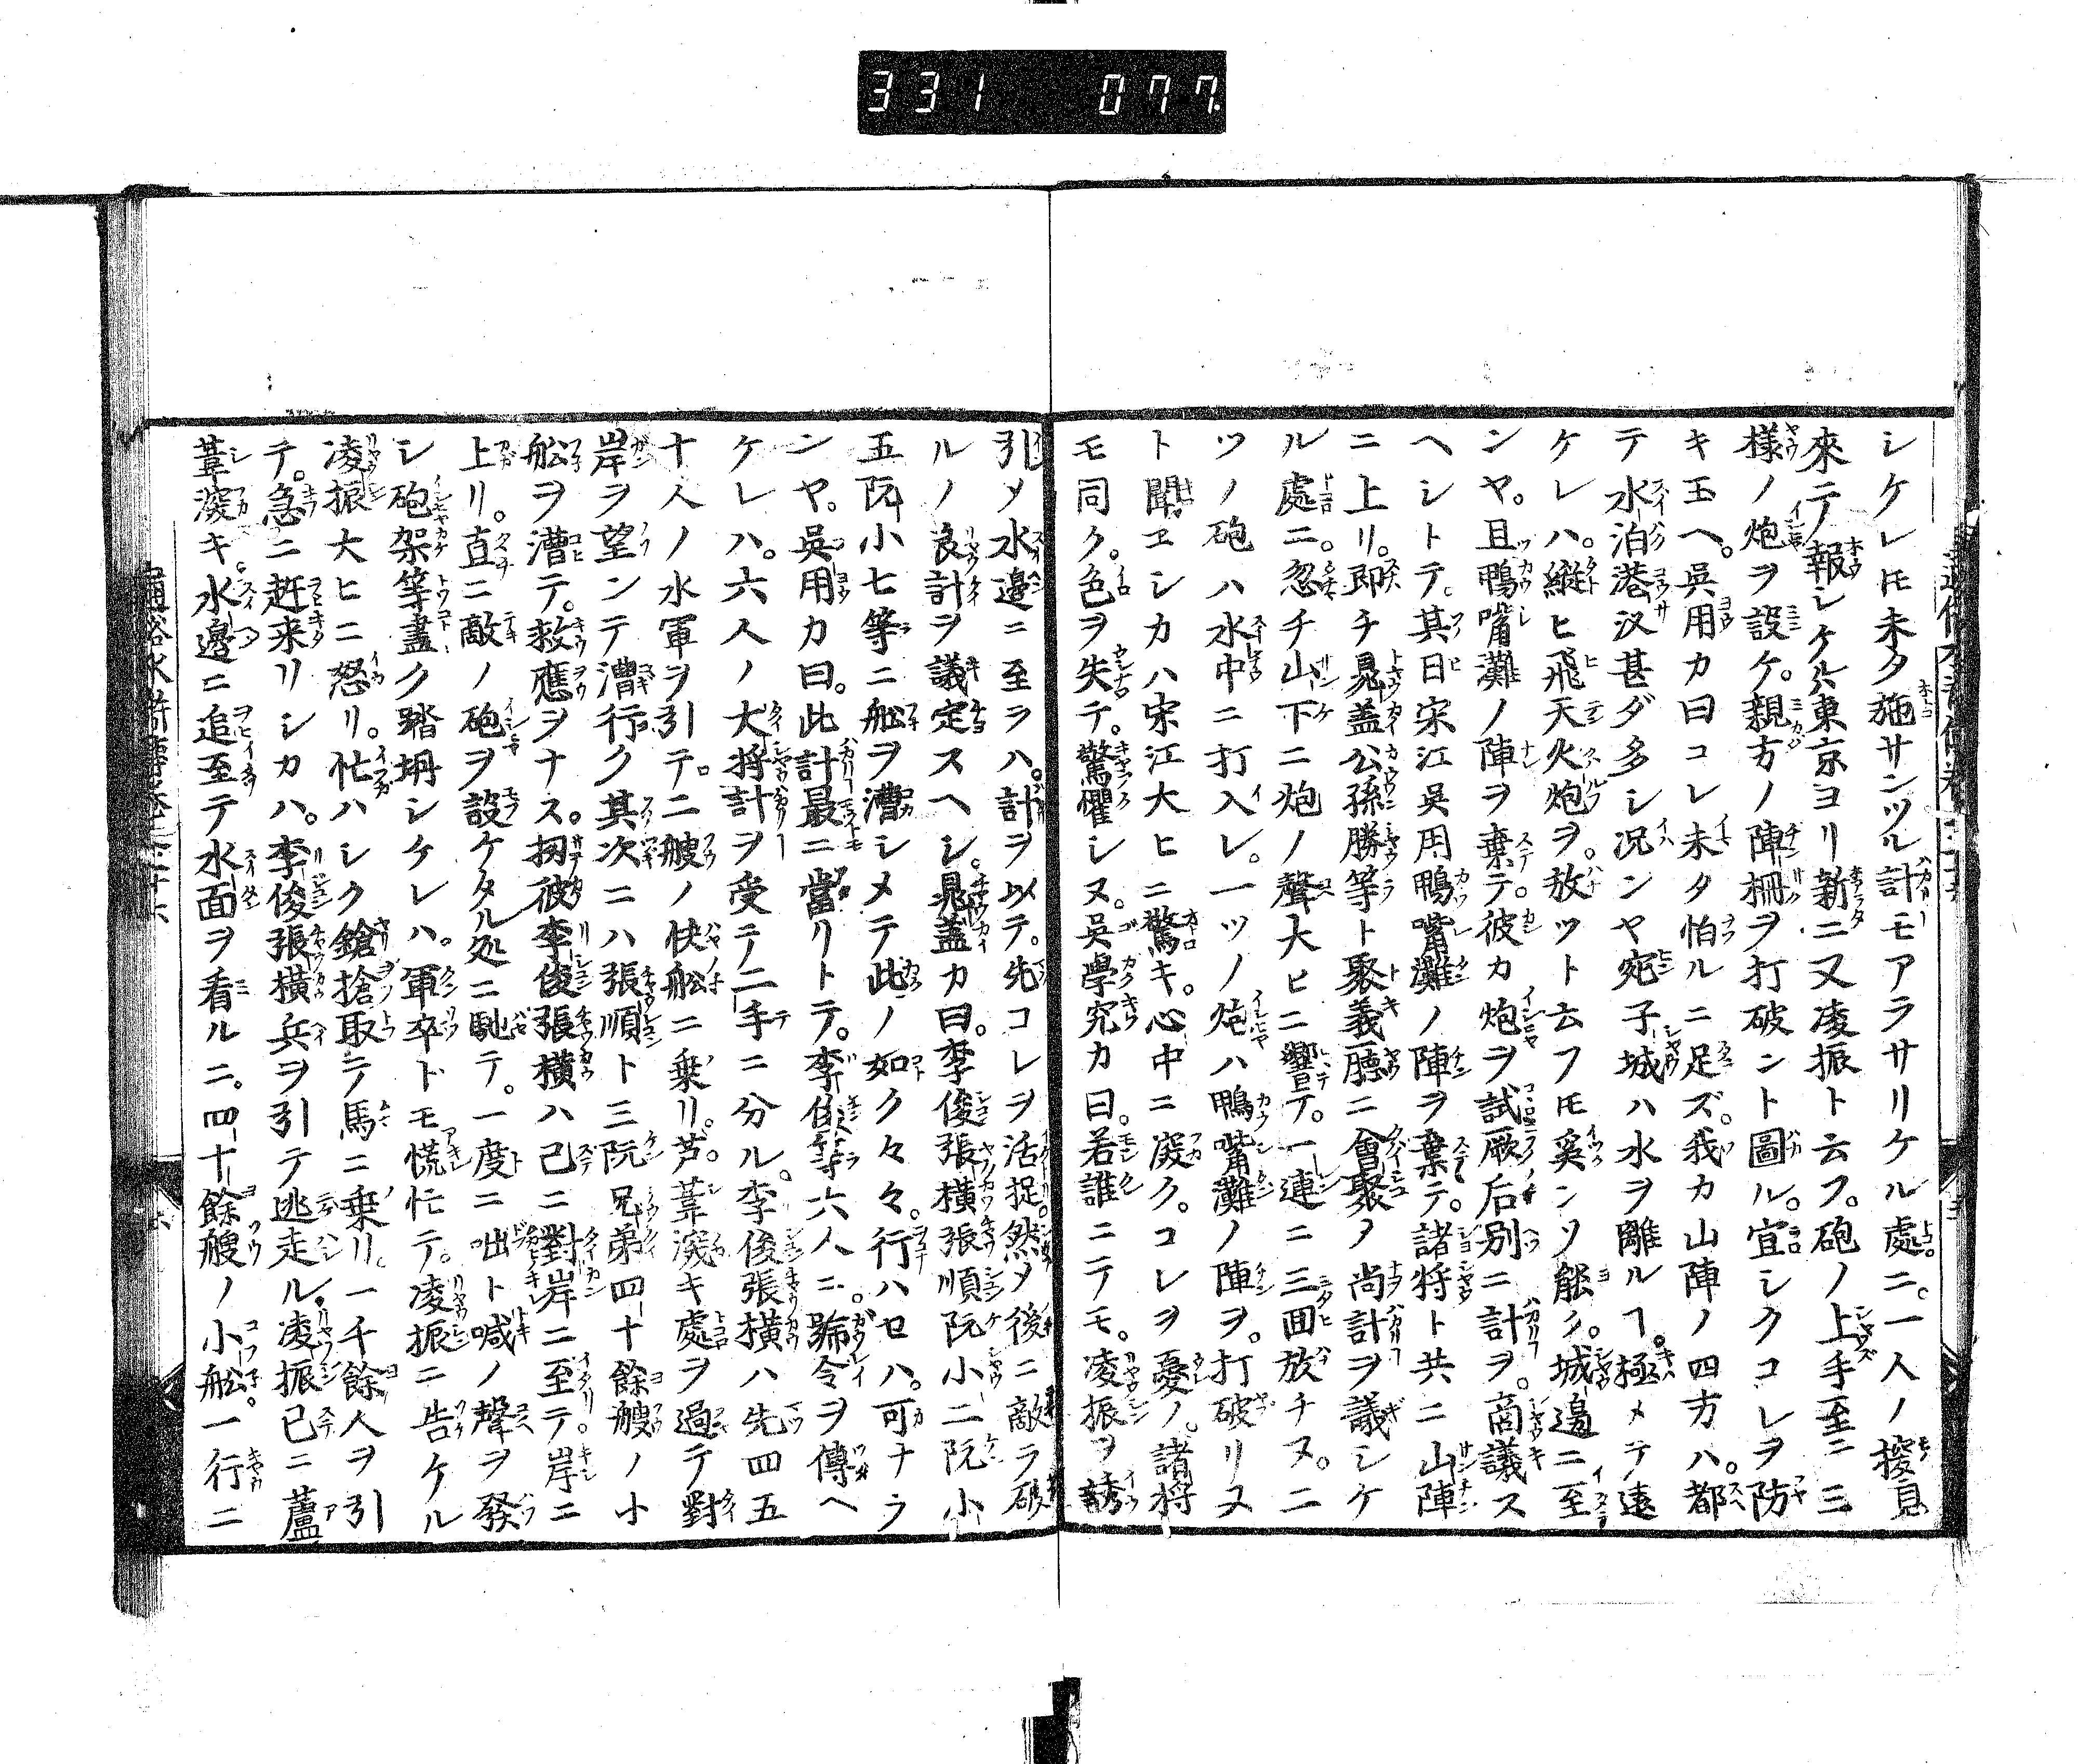 331 077
シケレ𪜈未タ施サンツル計モアラサリケル處ニ。一人ノ
來テ報シケルハ東京ヨリ新ニ又凌振ト云フ。砲ノ上手至ニ三
様ノ炮ヲ設ケ。親方ノ陣柵ヲ打破ント圖ル。宜シクコレヲ防
キ玉ヘ。吳用カ曰コレ未タ怕ルニ足ズ。我カ山陣ノ四方ハ。都
テ水泊港汊甚ダ多シ況ンヤ宛子城ハ水ヲ離ルヿ。極メテ遠
ケレハ。縦ヒ飛天火炮ヲ。放ツト云フ𪜈奚ンソ能ク。城邉ニ至
ンヤ。且鴨嘴灘ノ陣ヲ棄テ。彼カ炮ヲ試厥后別ニ計ヲ。商議ス
ヘシトテ。其日宋江吳用鴨嘴灘ノ陣ヲ棄テ。諸将ト共ニ山陣
ニ上リ。即チ晁盖公孫勝等ト聚義廳ニ會聚ノ尚計ヲ議シケ
ル處ニ。忽チ山下ニ炮ノ聲大ヒニ響テ。一連ニ三囬放チヌ。二
ツノ砲ハ水中ニ打入レ。一ツノ炮ハ鴨嘴灘ノ陣ヲ。打破リヌ
ト聞ヱシカハ宋江大ヒニ驚キ。心中ニ深ク。コレヲ憂ノ。諸将
モ同ク。色ヲ失テ。驚懼シヌ。吳學究カ曰。若誰ニテモ。凌振ヲ誘
引メ水邉ニ至ラハ。計ヲ以テ。先コレヲ活捉。然メ後ニ敵ラ破
ルノ良計ヲ議定スヘシ。晁盖カ曰。李俊張横張順阮小二阮小
五阮小七等ニ舩ヲ漕シメテ此ノ如ク々々。行ハセハ。可ナラ
ンヤ。吳用カ曰。此計最ニ當リトテ。李俊等六人ニ。號令ヲ傳ヘ
ケレハ。六人ノ大将計ヲ受テ二手ニ分ル。李俊張横ハ先四五
十人ノ水軍ヲ引テ。二艘ノ快舩ニ乗リ。芦葦深キ處ヲ過テ對
岸ヲ望ンテ漕行ク其次ニハ張順ト三阮兄弟四十餘艘ノ小
舩ヲ漕テ。救應ヲナス。扨彼李俊張横ハ已ニ對岸ニ至テ。岸ニ
上リ。直ニ敵ノ砲ヲ設ケタル処ニ馳テ。一度ニ咄ト喊ノ聲ヲ發
シ砲架等盡ク踏坍シケレハ。軍卒ドモ慌忙テ。凌振ニ告ケル
凌振大ヒニ怒リ。忙ハシク鎗搶取テ馬ニ乗リ。一千餘人ヲ引
テ。急ニ赶来リシカハ。李俊張横兵ヲ引テ逃走ル。凌振已ニ蘆
葦深キ。水邉ニ追至テ水面ヲ看ルニ。四十餘艘ノ小舩。一行ニ